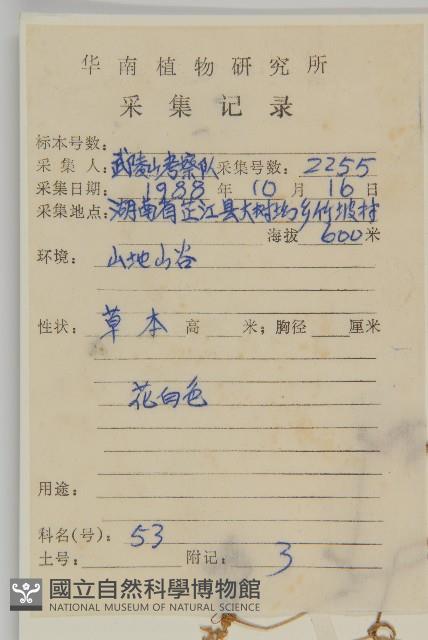 华南植物研究所
采集记录
标本号数:
采集人: 武陵山考察队 采集号数: 2255
采集日期: 1988 年 10 月 16 日
采集地点: 湖南省芷江县大树坳乡竹坡村
海拔 600 米
环境: 山地山谷
性状: 草本 高 米; 胸径 厘米
花白色
用途:
科名(号): 53
土号: 附记: 3
國立自然科學博物館
NATIONAL MUSEUM OF NATURAL SCIENCE